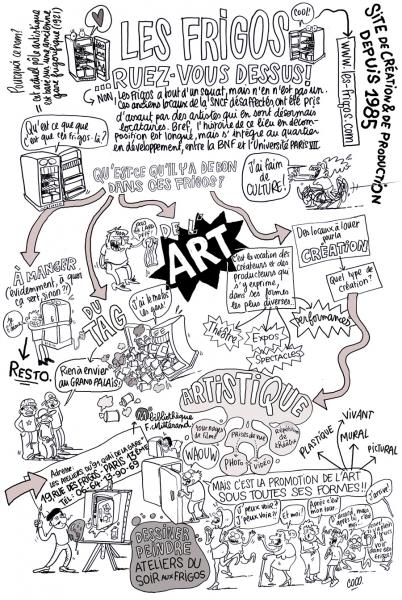 Pourquoi ce nom?
Cet actuel pôle artistique
est basé sur une ancienne
gare frigorifique (1921)
COOL!
LES FRIGOS
RUEZ-VOUS DESSUS!
www.les-frigos.com
SITE DE CRÉATION & DE PRODUCTION
DEPUIS 1985
NON, Les Frigos a tout d'un squat, mais n'en est pas un.
Ces anciens locaux de la SNCF désaffectés ont été pris
d'assaut par des artistes qui en sont désormais
locataires. Bref, l'histoire de ce lieu en décom-
position est longue, mais s'intègre au quartier
en développement, entre la BNF et l'Université PARIS VII.
Qu'est ce que que
c'est que ces frigos-là!
QU'EST-CE QU'IL Y A DE BON
DANS CES FRIGOS?
J'ai faim de
CULTURE!
À MANGER
(évidemment, à quoi
ça sert sinon??)
RESTO.
DU
TAG
J'ai le matos
les gars!
Rien à envier
au GRAND PALAIS!
DE L'
ART
C'est la vocation des
créateurs et des
producteurs qui
s'y exprime,
dans ses formes
les plus diverses.
Des locaux à louer
pour la
CRÉATION
Quel type de
création?
Théâtre
Expos
Spectacles
Performances
ARTISTIQUE
Tournages
de film
Prises de vue
Répétitions
de théâtre
WAOUW
PHOTO
VIDÉO
Bibliothèque
F. Mitterrand
Adresse
LES ATELIERS DU 91 QUAI DE LA GARE
19 RUE DES FRIGOS PARIS 13ème
PLASTIQUE
VIVANT
MURAL
PICTURAL
MAIS C'EST LA PROMOTION DE L'ART
SOUS TOUTES SES FORMES!!
DESSINER
PEINDRE
ATELIERS DU
SOIR AUX FRIGOS
J'peux voir?
J'peux voir?!
Et moi!
Après c'est
mon tour
J'arrive!
COCO.